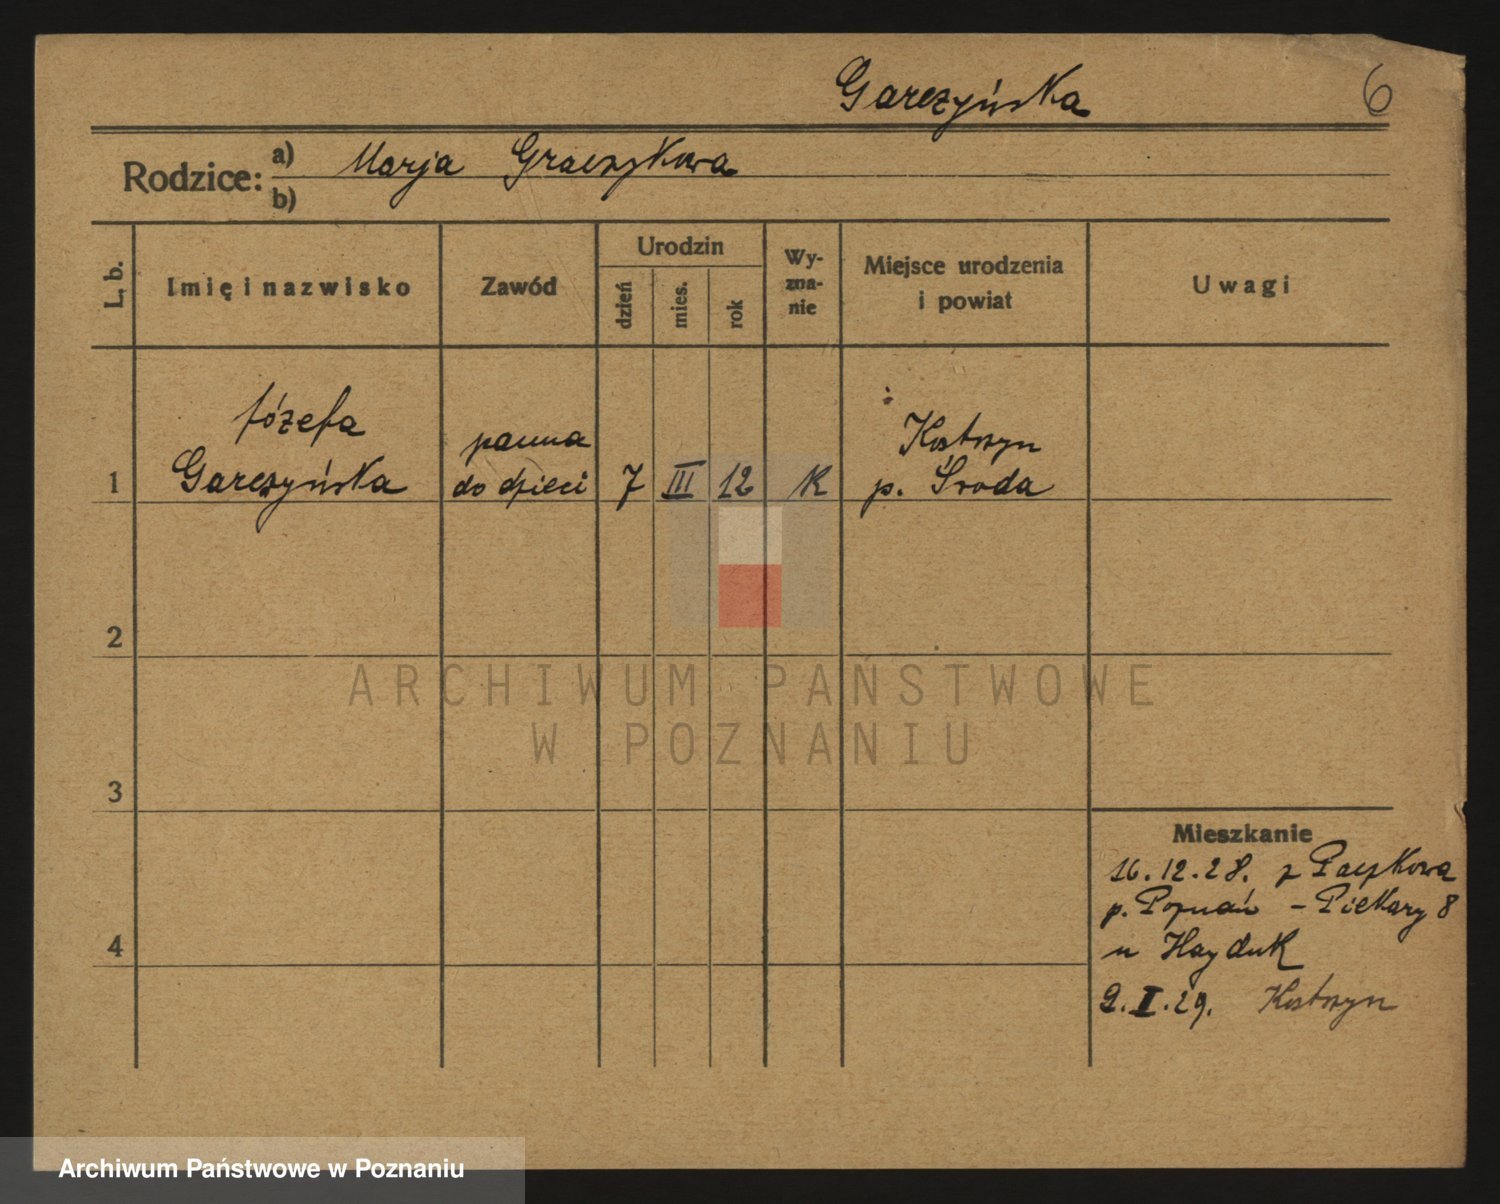 Garczyńska
6
Rodzice:
a) Marja Graczykowa
b)
L. b.
Imię i nazwisko
Zawód
Urodzin
dzień
mies.
rok
Wy-
zna-
nie
Miejsce urodzenia
i powiat
Uwagi
1
Józefa
Garczyńska
panna
do dzieci
7
III
12
K
Kostrzyn
p. Środa
2
3
4
Mieszkanie
16.12.28. z Paczkowa
p. Poznań – Piekary 8
u Hayduk
9.I.29. Kostrzyn
ARCHIWUM PAŃSTWOWE
W POZNANIU
Archiwum Państwowe w Poznaniu